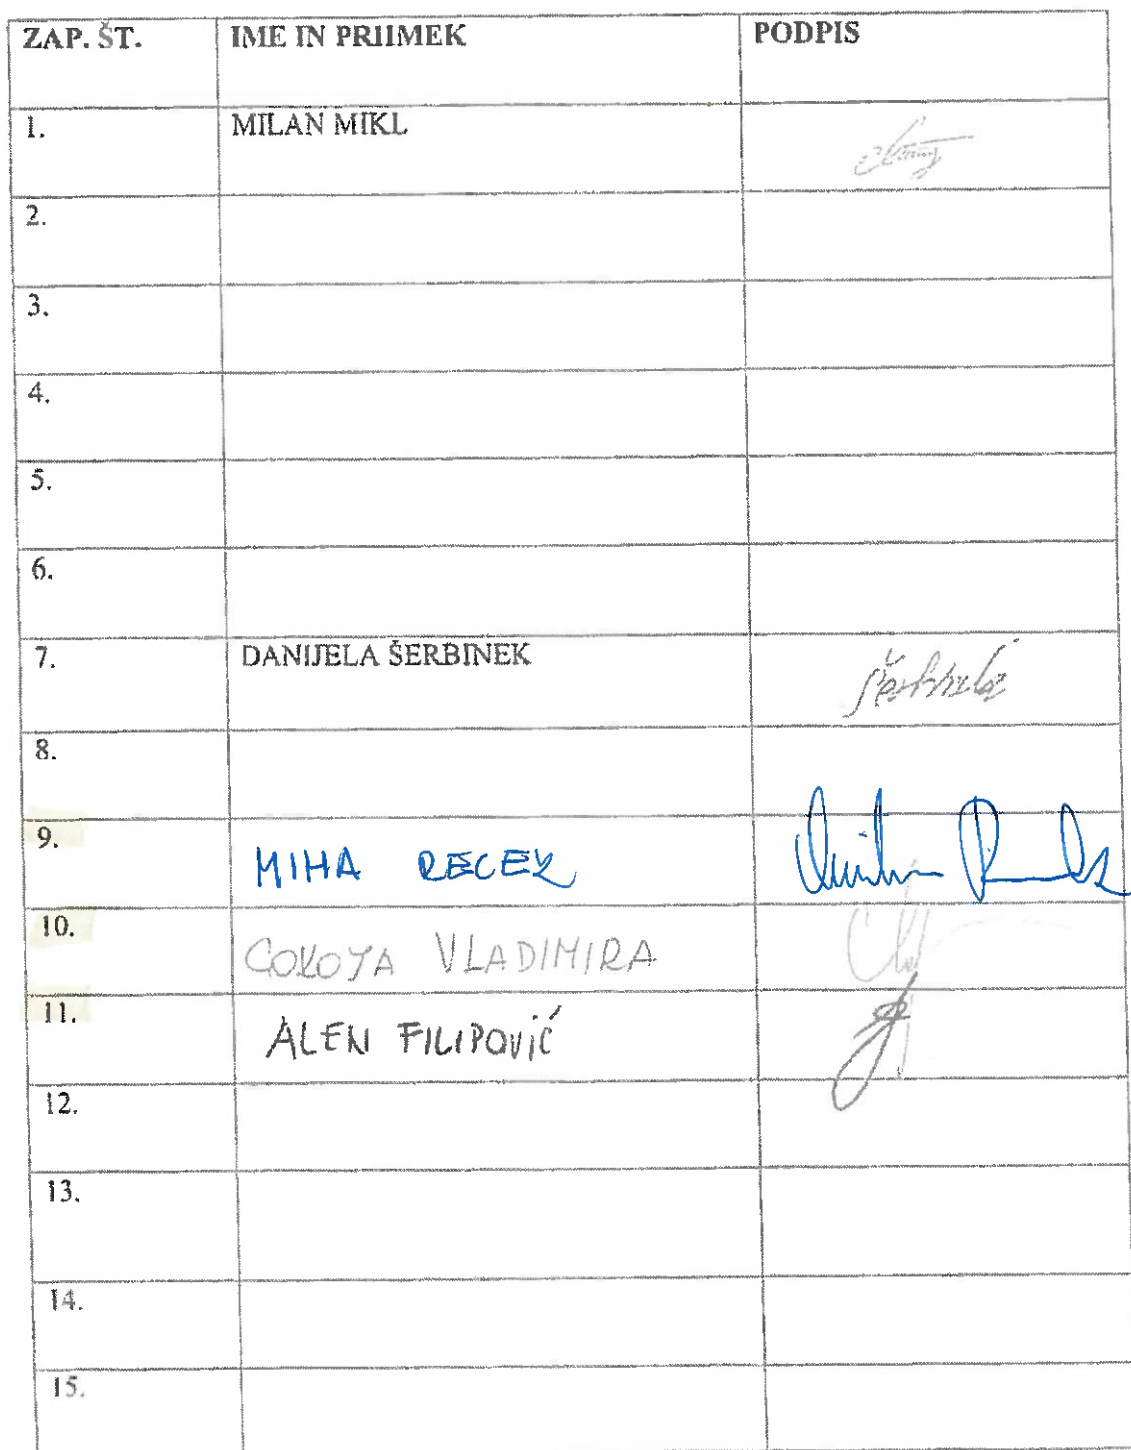 ZAP. ŠT. IME IN PRIIMEK PODPIS
1. MILAN MIKL
2.
3.
4.
5.
6.
7. DANIJELA ŠERBINEK
8.
9. MIHA RECEK
10. COKOYA VLADIMIRA
11. ALEN FILIPOVIĆ
12.
13.
14.
15.